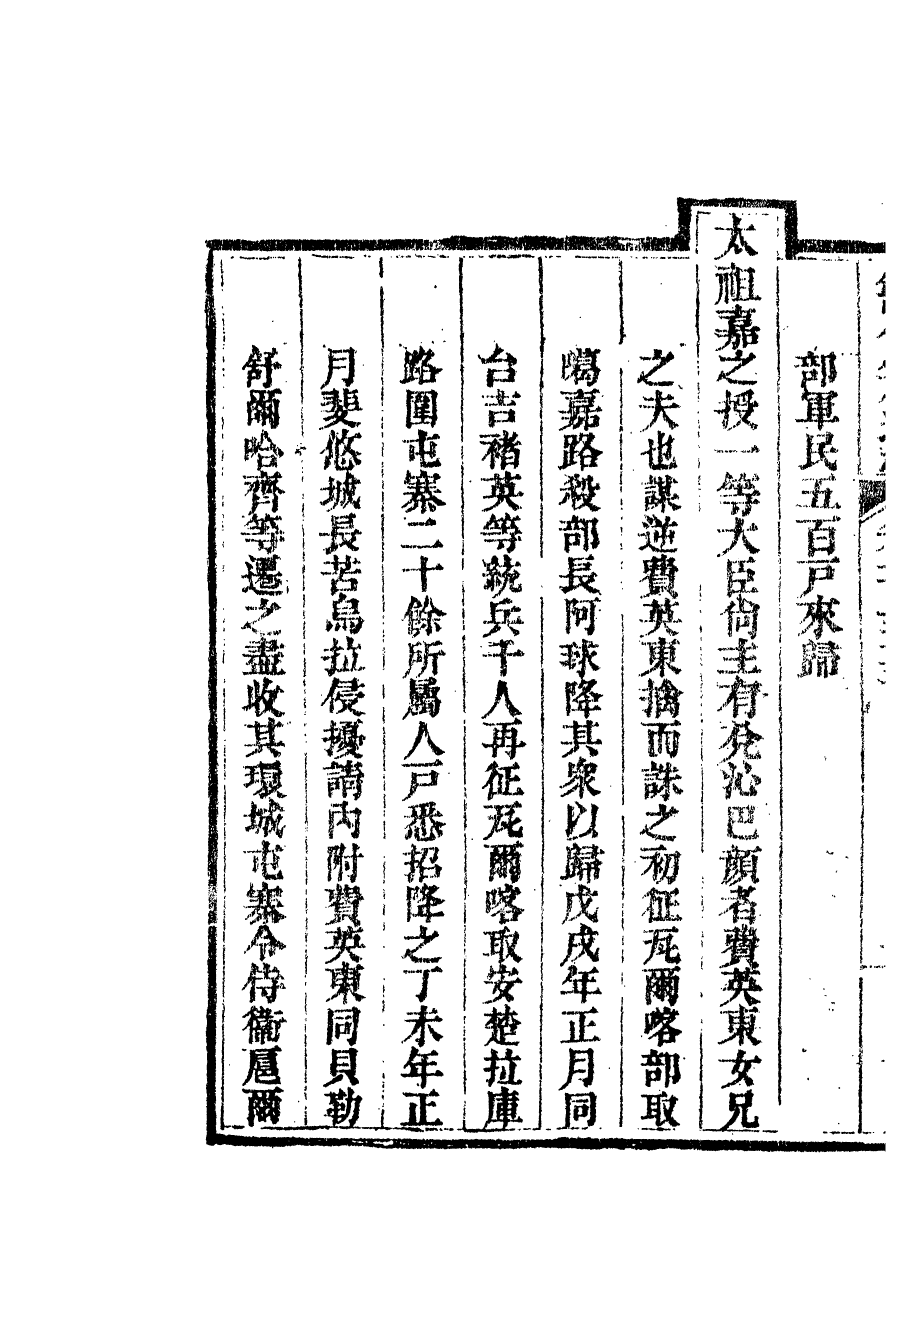 部軍民五百戸來歸
太祖嘉之授一等大臣尙主有兌沁巴顏者費英東女兄
之夫也謀逆費英東擒而誅之初征瓦爾喀部取
噶嘉路殺部長阿球降其衆以歸戊戌年正月同
台吉褚英等統兵千人再征瓦爾喀取安楚拉庫
路圍屯寨二十餘所屬人戸悉招降之丁未年正
月斐悠城長苦烏拉侵擾請內附費英東同貝勒
舒爾哈齊等遷之盡收其環城屯寨令侍衞扈爾